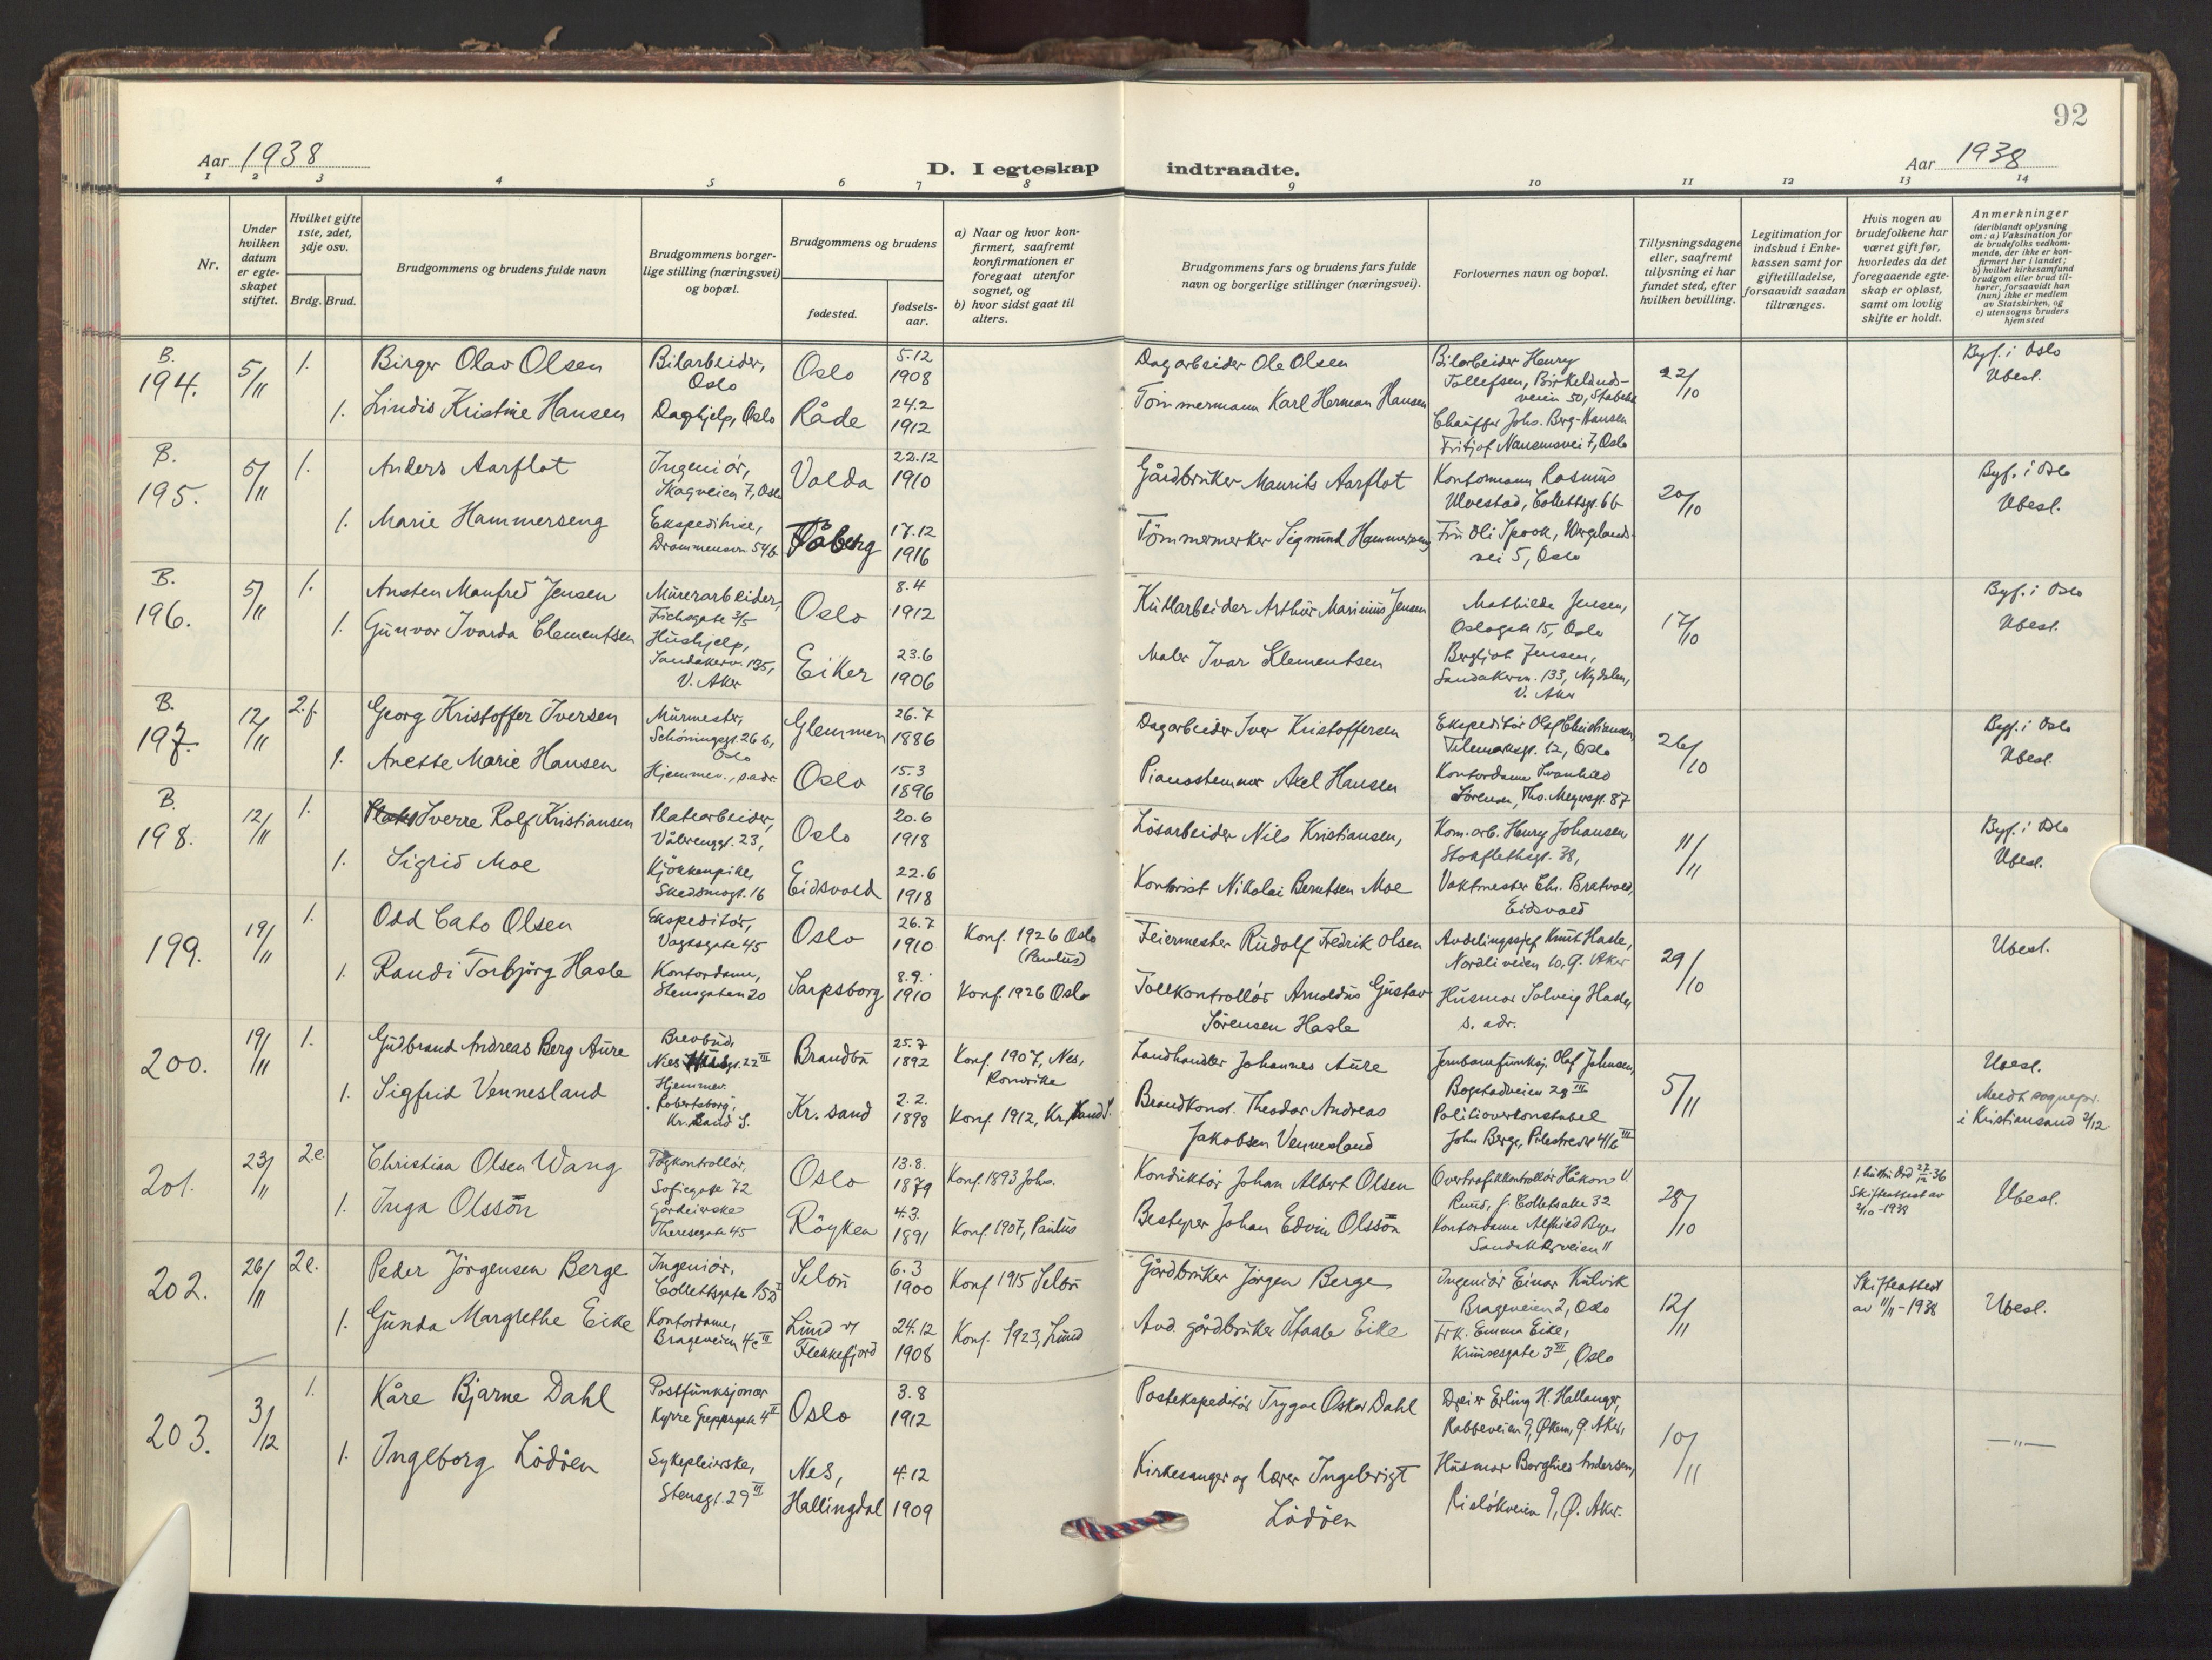 92
Aar 1938
D. I egteskap indtraadte.
Aar 1938
1 2 3 4 5 6 7 8 9 10 11 12 13 14
Nr.
Under hvilken datum er egte-skapet stiftet.
Hvilket gifte 1ste, 2det, 3dje osv.
Brdg. Brud.
Brudgommens og brudens fulde navn
Brudgommens borger-lige stilling (næringsvei) og bopæl.
Brudgommens og brudens
fødested.
fødsels-aar.
a) Naar og hvor kon-firmert, saafremt konfirmationen er foregaat utenfor sognet, og
b) hvor sidst gaat til alters.
Brudgommens fars og brudens fars fulde navn og borgerlige stillinger (næringsvei).
Forlovernes navn og bopæl.
Tillysningsdagene eller, saafremt tillysning ei har fundet sted, efter hvilken bevilling.
Legitimation for indskud i Enke-kassen samt for giftetilladelse, forsaavidt saadan tiltrænges.
Hvis nogen av brudefolkene har været gift før, hvorledes da det foregaaende egte-skap er opløst, samt om lovlig skifte er holdt.
Anmerkninger (deriblandt oplysning om: a) Vaksination for de brudefolks vedkom-mende, der ikke er kon-firmert her i landet; b) hvilket kirkesamfund brudgom eller brud til-hører, forsaavidt han (hun) ikke er medlem av Statskirken, og c) utensogns bruders hjemsted
B. 194. 5/11 1. Birger Olav Olsen Bilarbeider, Oslo Oslo 5.12 1908 Dagarbeider Ole Olsen Bilarbeider Henry Tollefsen, Birkelunds-veien 50, Stabekk 22/10 Byf. i Oslo Ubesl.
1. Lindis Kristine Hansen Daghjelp, Oslo Råde 24.2 1912 Tömmermann Karl Herman Hansen Chauffør Johs. Berg-Hansen Fritjof Nansensvei 7, Oslo
B. 195. 5/11 1. Anders Aarflot Ingeniör, Skagveien 7, Oslo Volda 22.12 1910 Gårdbruker Maurits Aarflot Kontormann Rasmus Ulvestad, Collettsgt. 66 20/10 Byf. i Oslo Ubesl.
1. Marie Hammerseng Ekspeditrise, Drammensvn 54b Fåberg 17.12 1916 Tömmermerker Sigmund Hammerseng Fru Oli Spook, Wergelands-vei 5, Oslo
B. 196. 5/11 1. Austen Manfred Jensen Murerarbeider, Frichsgate 3/5 Oslo 8.4 1912 Kullarbeider Arthur Marinius Jensen Mathilde Jensen, Oslogate 15, Oslo 17/10 Byf. i Oslo Ubesl.
1. Gunvor Ivarda Clementsen Hushjelp, Sandakerv. 135, V. Aker Eiker 23.6 1906 Maler Ivar Klementsen Bergljot Jensen, Sandakervn. 133, Nydalen, V. Aker
B. 197. 12/11 2.f. Georg Kristoffer Iversen Murmester, Schöningsgt. 26 b, Oslo Glemmen 26.7 1886 Dagarbeider Iver Kristoffersen Ekspeditör Olaf Christiansen, Telemarksgt. 12, Oslo 26/10 Byf. i Oslo Ubesl.
1. Anette Marie Hansen Hjemmev., s. adr. Oslo 15.3 1896 Pianostemmer Axel Hansen Kontordame Svanhild Sörensen, Tho. Meyersgt. 87
B. 198. 12/11 1. Sverre Rolf Kristiansen Platearbeider, Vålrenggt. 23, Oslo 20.6 1918 Lösarbeider Nils Kristiansen, Kom. arb. Henry Johansen, Stokflethsgt. 38, 11/11 Byf. i Oslo Ubesl.
1. Sigrid Moe Kjökkenpike, Skedsmogt. 16 Eidsvold 22.6 1918 Kontorist Nikolai Berntsen Moe Vaktmester Chr. Bratvold, Eidsvold
199. 19/11 1. Odd Cato Olsen Ekspeditör, Vogtsgate 45 Oslo 26.7 1910 Konf. 1926 Oslo (Paulus) Feiermester Rudolf Fredrik Olsen Avdelingssjef Knut Hasle, Nordliveien 10, Ø. Aker 29/10 Ubesl.
1. Randi Torbjörg Hasle Kontordame, Stensgaten 20 Sarpsborg 8.9. 1910 Konf. 1926 Oslo Tollkontrollör Arnoldus Gustav Sörensen Hasle Husmor Solveig Hasle, s. adr.
200. 19/11 1. Gudbrand Andreas Berg Aure Brevbud, 22 III Brandbu 25.7 1892 Konf. 1907, Nes, Romerike Landhandler Johannes Aure Jernbanefunksj. Olaf Johnsen, Bogstadveien 28 III 5/11 Ubesl.
1. Sigfrid Vennesland Hjemmev. Robertsborg, Kr. Sand S. Kr. sand 2.2. 1898 Konf. 1912, Kr. Sand S. Brandkonst. Theodor Andreas Jakobsen Vennesland Politioverkonstabel John Berge, Pilestredet III Medt sognepr. i Kristiansand 2/12.
201. 23/11 2.e. Christian Olsen Wang Togkontrollör, Sofiegate 72 Oslo 13.8. 1879 Konf. 1893 Johs. Konduktör Johan Albert Olsen Overtrafikkontrollör Håkon V. Ruud, Colletsgate 32 28/10 Skifteattest av 2/10-1938 Ubesl.
1. Inga Olsson Theresegate 45 Röyken 4.3. 1891 Konf. 1907, Paulus Bestyrer Johan Edvin Olsson Kontordame Alfhild Sandakerveien 11
202. 26/11 2e. Peder Jörgensen Berge Ingeniör, Collettsgate Selöu 6.3 1900 Konf 1915 Selöu Gårdbruker Jörgen Berge Ingeniör Einar Kulvik Brageveien 2, Oslo 12/11 Skifteattest av 11/11-1938 Ubesl.
1. Gunda Margrethe Eike Kontordame, Brageveien 4c III Lund v/ Flekkefjord 24.12 1908 Konf. 1923, Lund Avd. gårdbruker Staale Eike Frk. Emma Eike, Krumsgate 3 III, Oslo
203. 3/12 1. Kåre Bjarne Dahl Postfunksjonær Kyrre Greppsgate 4 II Oslo 3.8 1912 Postekspeditör Trygve Oskar Dahl Dreier Erling H. Hallanger, Rabbeveien 9, Økern, Ø. Aker, 10/11 —"—
1. Ingeborg Lödöen Sykepleierske, Stensgt. 29 III Nes, Hallingdal 4.12 1909 Kirkesanger og lærer Ingebrigt Lödöen Husmor Borghild Andersen, Risløkveien 9, Ø. Aker.